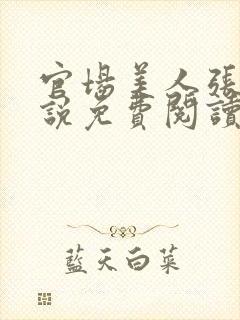 官場美人張
說免費閱讀
藍天白菜